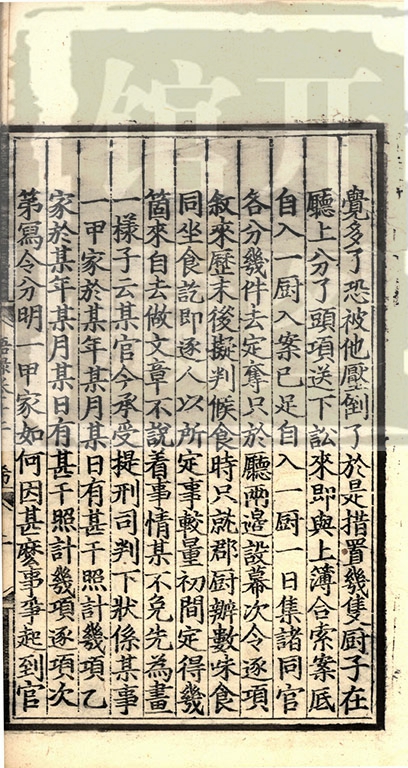 覺多了恐被他壓倒了於是措置幾隻廚子在
廳上分了頭項送下訟來即與上簿合索案底
自入一廚入案已足自入一廚一日集諸同官
各分幾件去定奪只於廳兩邊設幕次令逐項
敘來歷末後擬判候食時只就郡廚辦數味食
同坐食訖即逐人以所定事較量初間定得幾
箇來自去做文章不說着事情某不免先為畫
一樣子云某官今承受提刑司判下狀係某事
一甲家於某年某月某日有甚干照計幾項乙
家於某年某月某日有甚干照計幾項逐項次
第寫令分明一甲家如何因甚麼事爭起到官